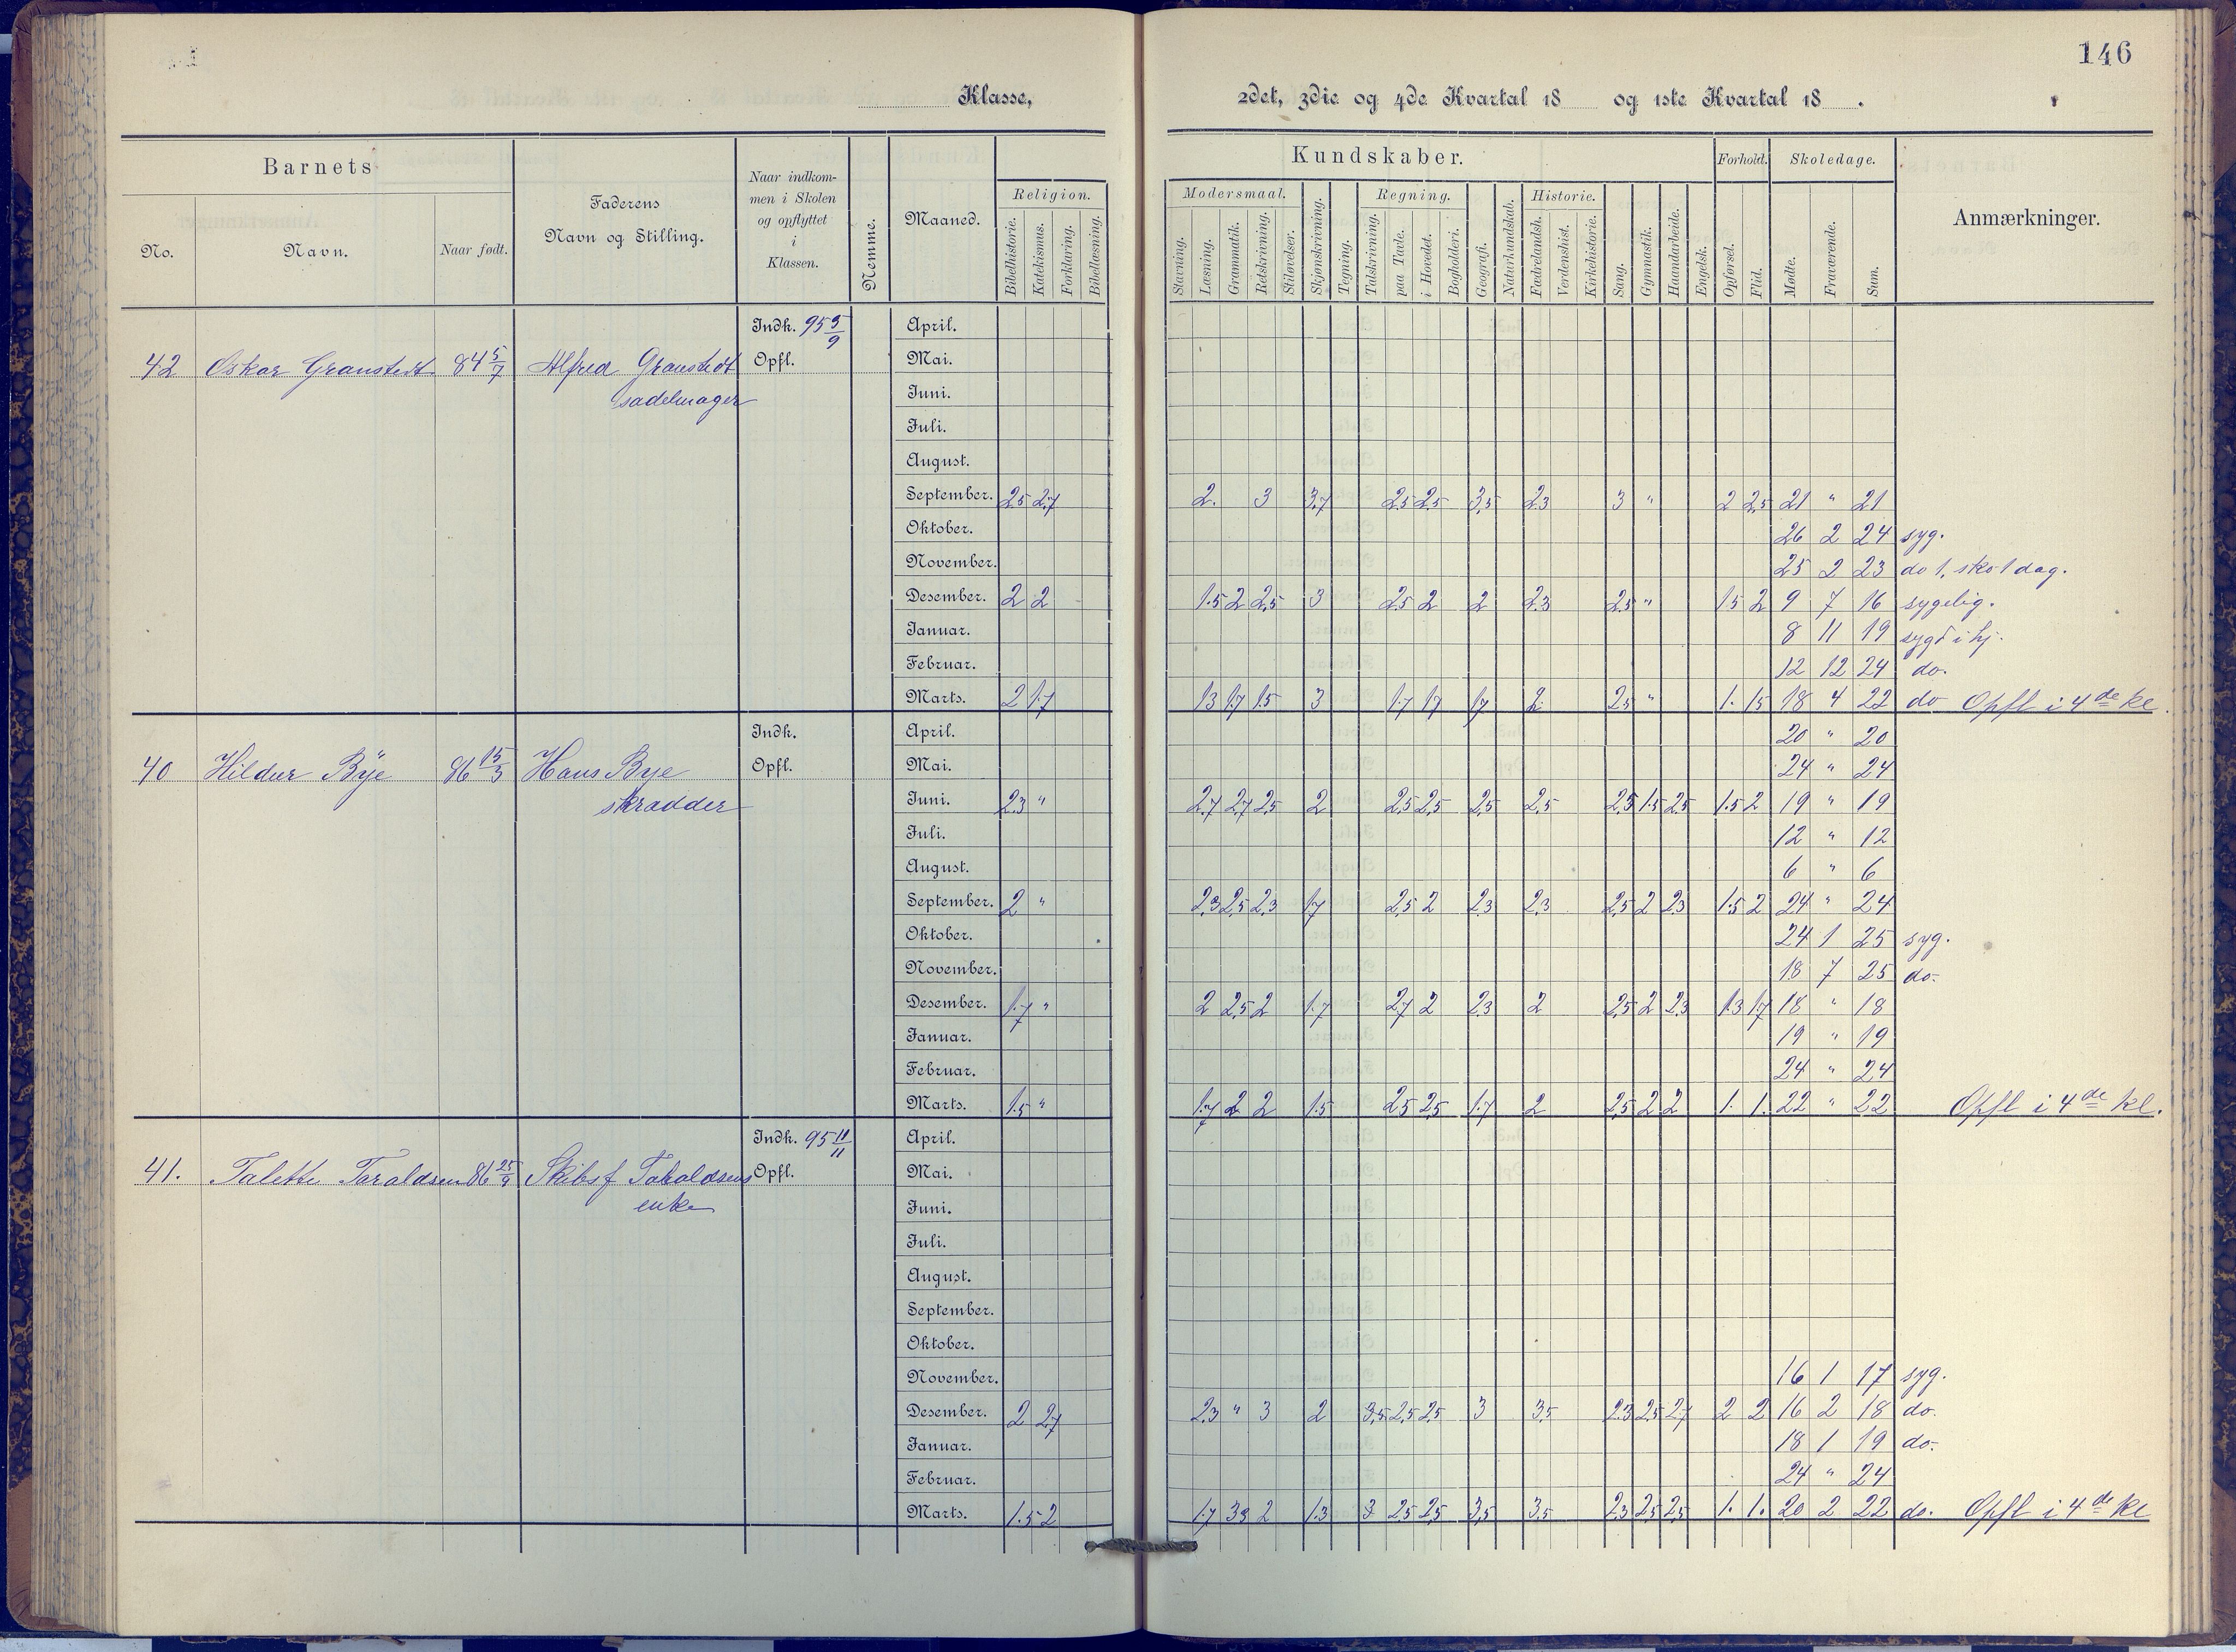 146
Klasse, 2det, 3die og 4de Kvartal 18 og 1ste Kvartal 18 .
Barnets Kundskaber. Forhold. Skoledage.
No. Navn. Naar født. Faderens Navn og Stilling. Naar indkommen i Skolen og opflyttet i Klassen. Nemme. Maaned. Religion. Modersmaal. Regning. Historie. Anmærkninger.
Bibelhistorie. Katekismus. Forklaring. Bibellæsning. Stavning. Læsning. Grammatik. Retskrivning. Stiløvelser. Skjønskrivning. Tegning. Talskrivning. paa Tavle. i Hovedet. Bogholderi. Geografi. Naturkundskab. Fædrelandsh. Verdenshist. Kirkehistorie. Sang. Gymnastik. Haandarbeide. Engelsk. Opførsel. Flid. Mødte. Fraværende. Sum.
Indk. 95 5/9 April.
42 Oskar Granstedt 84 5/7 Alfred Granstedt Opfl. Mai.
sadelmager Juni.
Juli.
August.
September. 2.5 2.7 2. 3 3.7 2.5 2.5 3.5 2.3 3 " 2 2.5 21 " 21
Oktober. 26 2 24 syg.
November. 25 2 23 do 1, sko 1 dag.
Desember. 2 2 1.5 2 2.5 3 2.5 2 2 2.3 2.5 " 1.5 2 9 7 16 sygelig.
Januar. 8 11 19 sygd i hj.
Februar. 12 12 24 do.
Marts. 2 1.7 1.3 1.7 1.5 3 1.7 1.7 1.7 2. 2.5 " 1. 1.5 18 4 22 do Opfl i 4de kl.
Indk. April. 20 " 20
40 Hildur Bye 86 15/3 Hans Bye Opfl. Mai. 24 " 24
skradder Juni. 2.3 " 2.7 2.7 2.5 2 2.5 2.5 2.5 2.5 2.5 1.5 2.5 1.5 2 19 " 19
Juli. 12 " 12
August. 6 " 6
September. 2 " 2.3 2.5 2.3 1.7 2.5 2 2.3 2.3 2.5 2 2.3 1.5 2 24 " 24
Oktober. 24 1 25 syg.
November. 18 7 25 do.
Desember. 1.7 " 2 2.5 2 1.7 2.7 2 2.3 2 2.5 2 2.3 1.3 1.7 18 " 18
Januar. 19 " 19
Februar. 24 " 24
Marts. 1.5 " 1.7 2 2 1.5 2.5 2.5 1.7 2 2.5 2 2 1. 1. 22 " 22 Opfl i 4de kl.
Indk. 95 11/11 April.
41. Talette Taraldsen 86 25/9 Skibsf Taraldsens Opfl. Mai.
enke Juni.
Juli.
August.
September.
Oktober.
November. 16 1 17 syg.
Desember. 2 2.7 2.3 " 3 2 3.5 2.5 2.5 3 3.5 2.3 2.5 2.7 2 2 16 2 18 do.
Januar. 18 1 19 do.
Februar. 24 " 24
Marts. 1.5 2 1.7 3.3 2 1.3 3 2.5 2.5 3.5 3.5 2.3 2.5 2.5 1. 1. 20 2 22 do. Opfl i 4de kl